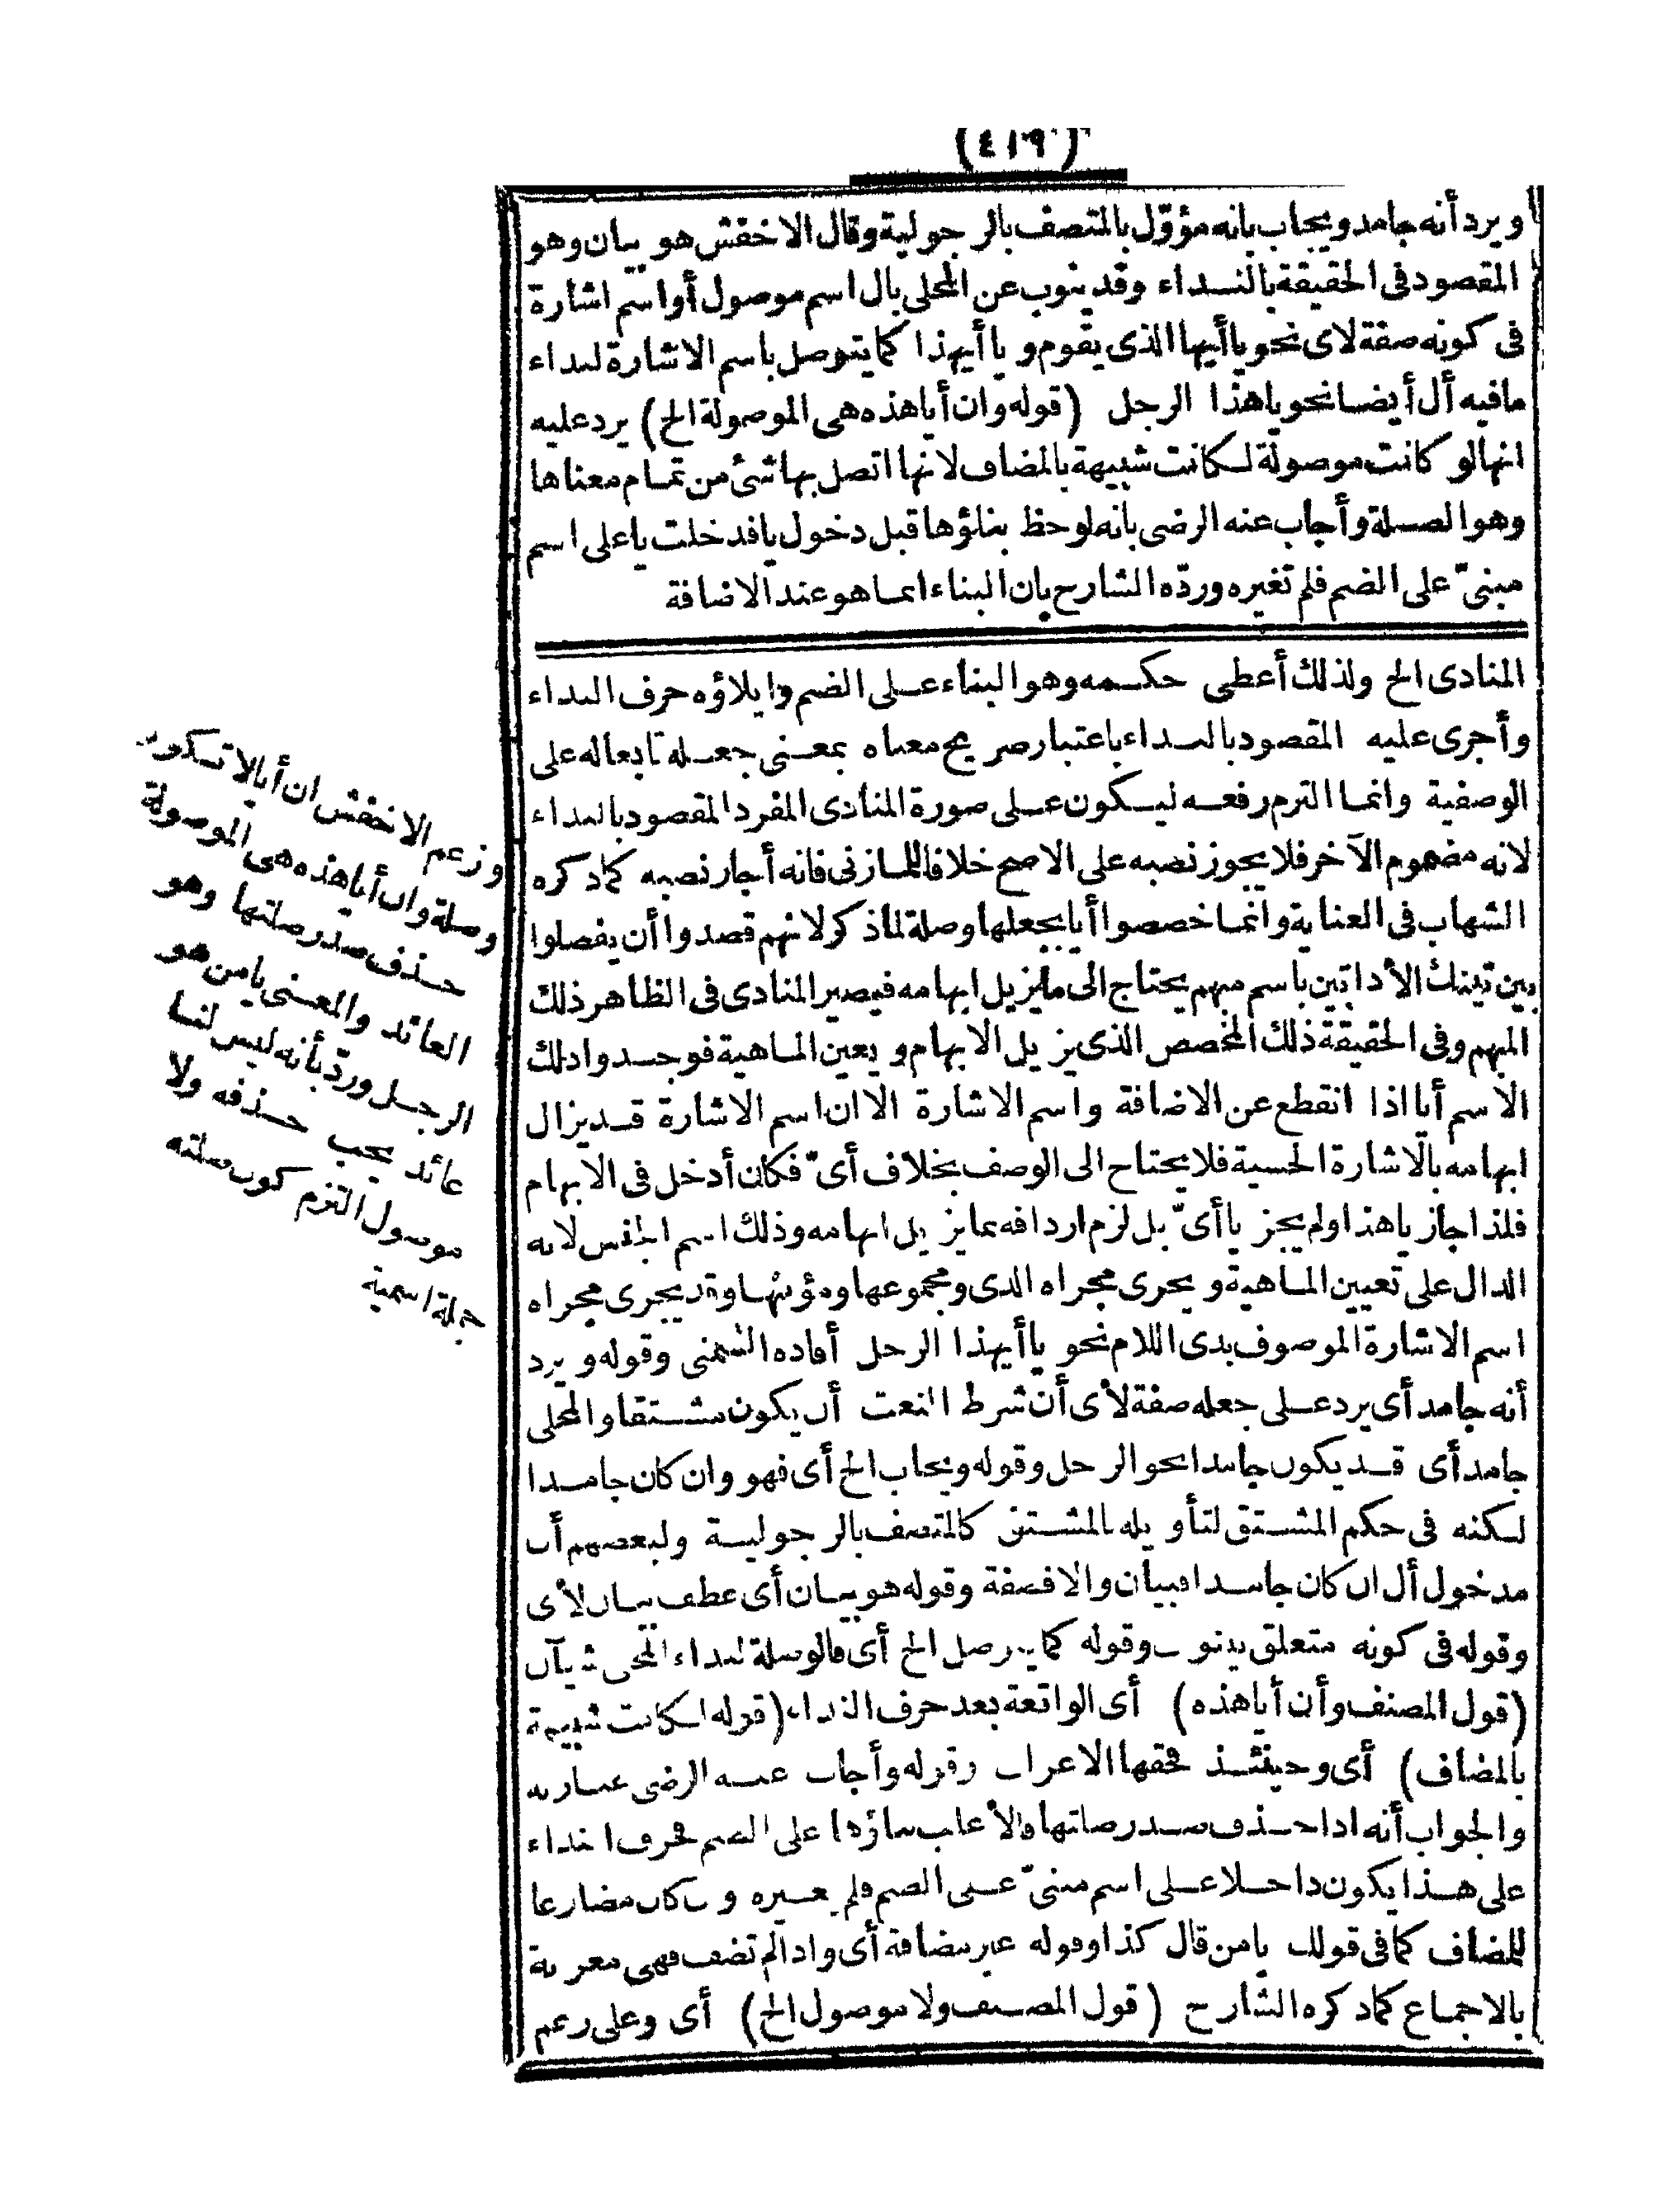 (٤١٩)
ويرد أنه جامد ويجاب بانه مؤوّل بالمتصف بالرجولية وقال الاخفش هو بيان وهو
المقصود فى الحقيقة بالنداء وقد ينوب عن المحلى بال اسم موصول أو اسم اشارة
فى كونه صفة لاى نحو يا أيها الذى يقوم ويا أيهذا كما يتوصل باسم الاشارة لنداء
مافيه أل أيضا نحو يا هذا الرجل (قوله وان أيا هذه هى الموصولة الخ) يرد عليه
انها لو كانت موصولة لكانت شبيهة بالمضاف لانها اتصل بها شئ من تمام معناها
وهو الصلة وأجاب عنه الرضى بانه لوحظ بناؤها قبل دخول يا فدخلت يا على اسم
مبنىّ على الضم فلم تغيره وردّه الشارح بان البناء انما هو عند الاضافة
المنادى الخ ولذلك أعطى حكمه وهو البناء على الضم وايلاؤه حرف النداء
وأجرى عليه المقصود بالنداء باعتبار صريح معناه بمعنى جعله تابعا له على
الوصفية وانما التزم رفعه ليكون على صورة المنادى المفرد المقصود بالنداء
لانه مضموم الآخر فلا يجوز نصبه على الاصح خلافا للمازنى فانه أجاز نصبه كما ذكره
الشهاب فى العناية وانما خصصوا أيا بجعلها وصلة لما ذكر لانهم قصدوا أن يفصلوا
بين تينك الأداتين باسم مبهم يحتاج الى ما يزيل ابهامه فيصير المنادى فى الظاهر ذلك
المبهم وفى الحقيقة ذلك المخصص الذى يزيل الابهام ويعين الماهية فوجدوا ذلك
الاسم أيا اذا انقطع عن الاضافة واسم الاشارة الا ان اسم الاشارة قد يزال
ابهامه بالاشارة الحسية فلا يحتاج الى الوصف بخلاف أىّ فكان أدخل فى الابهام
فلذا جاز يا هذا ولم يجز يا أىّ بل لزم اردافه بما يزيل ابهامه وذلك اسم الجنس لانه
الدال على تعيين الماهية ويجرى مجراه الذى ومجموعها ومؤنثها وقد يجرى مجراه
اسم الاشارة الموصوف بذى اللام نحو يا أيهذا الرجل أفاده الشمنى وقوله ويرد
أنه جامد أى يرد على جعله صفة لأى أن شرط النعت أن يكون مشتقا والمحلى
جامد أى قد يكون جامدا نحو الرجل وقوله ويجاب الخ أى فهو وان كان جامدا
لكنه فى حكم المشتق لتأويله بالمشتق كالمتصف بالرجولية ولبعضهم أن
مدخول أل ان كان جامدا فبيان والا فصفة وقوله هو بيان أى عطف بيان لأى
وقوله فى كونه متعلق بينوب وقوله كما يتوصل الخ أى فالوصلة لنداء المحلى شيآن
(قول المصنف وأن أيا هذه) أى الواقعة بعد حرف النداء (قوله لكانت شبيهة
بالمضاف) أى وحينئذ فحقها الاعراب وقوله وأجاب عنه الرضى عبارته
والجواب أنه اذا حذف صدر صلتها فالأغلب بناؤها على الضم فحرف النداء
على هذا يكون داخلا على اسم مبنىّ على الضم فلم يغيره وان كان مضارعا
للمضاف كما فى قولك يا من قال كذا وقوله غير مضافة أى واذا لم تضف فهى معربة
بالاجماع كما ذكره الشارح (قول المصنف ولا موصول الخ) أى وعلى زعم
وزعم الاخفش ان أيا لا تكون
وصلة وان أيا هذه هى الموصولة
حذف صدر صلتها وهو
العائد والمعنى يا من هو
الرجل وردّ بأنه ليس لنا
عائد يجب حذفه ولا
موصول التزم كون صلته
جملة اسمية